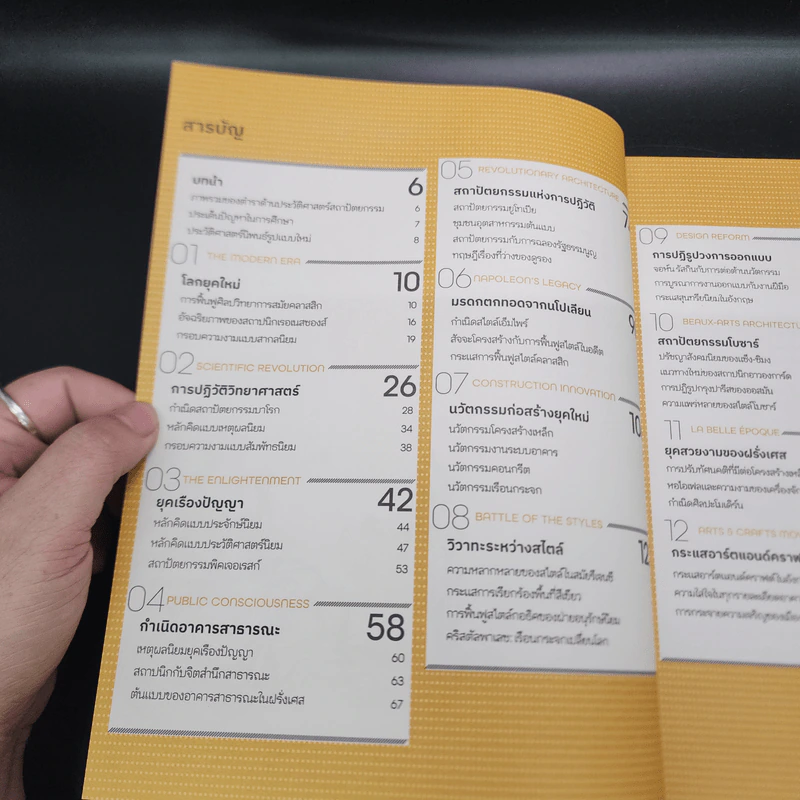 สารบัญ
บทนำ 6
ภาพรวมของตำราด้านประวัติศาสตร์สถาปัตยกรรม 6
ประเด็นปัญหาในการศึกษา 7
ประวัติศาสตร์นิพนธ์รูปแบบใหม่ 8
01 THE MODERN ERA
โลกยุคใหม่ 10
การฟื้นฟูศิลปวิทยาการสมัยคลาสสิก 10
อัจฉริยภาพของสถาปนิกเรอเนสซองส์ 16
กรอบความงามแบบสากลนิยม 19
02 SCIENTIFIC REVOLUTION
การปฏิวัติวิทยาศาสตร์ 26
กำเนิดสถาปัตยกรรมบาโรก 28
หลักคิดแบบเหตุผลนิยม 34
กรอบความงามแบบสัมพัทธนิยม 38
03 THE ENLIGHTENMENT
ยุคเรืองปัญญา 42
หลักคิดแบบประจักษ์นิยม 44
หลักคิดแบบประวัติศาสตร์นิยม 47
สถาปัตยกรรมพิคเจอเรสก์ 53
04 PUBLIC CONSCIOUSNESS
กำเนิดอาคารสาธารณะ 58
เหตุผลนิยมยุคเรืองปัญญา 60
สถาปนิกกับจิตสำนึกสาธารณะ 63
ต้นแบบของอาคารสาธารณะในฝรั่งเศส 67
05 REVOLUTIONARY ARCHITECTURE
สถาปัตยกรรมแห่งการปฏิวัติ 7
สถาปัตยกรรมยูโทเปีย
ชุมชนอุตสาหกรรมต้นแบบ
สถาปัตยกรรมกับการฉลองรัฐธรรมนูญ
ทฤษฎีเรื่องที่ว่างของดูรอง
06 NAPOLEON'S LEGACY
มรดกตกทอดจากนโปเลียน 9
กำเนิดสไตล์เอ็มไพร์
สัจจะโครงสร้างกับการฟื้นฟูสไตล์ในอดีต
กระแสการฟื้นฟูสไตล์คลาสสิก
07 CONSTRUCTION INNOVATION
นวัตกรรมก่อสร้างยุคใหม่ 10
นวัตกรรมโครงสร้างเหล็ก
นวัตกรรมงานระบบอาคาร
นวัตกรรมคอนกรีต
นวัตกรรมเรือนกระจก
08 BATTLE OF THE STYLES
วิวาทะระหว่างสไตล์ 12
ความหลากหลายของสไตล์ในสมัยรีเจนซี
กระแสการเรียกร้องพื้นที่สีเขียว
การฟื้นฟูสไตล์กอธิคของฝ่ายอนุรักษ์นิยม
คริสตัลพาเลซ: เรือนกระจกเปลี่ยนโลก
09 DESIGN REFORM
การปฏิรูปวงการออกแบบ
จอห์น รัสกินกับการต่อต้านนวัตกรรม
การบูรณาการงานออกแบบกับงานฝีมือ
กระแสสุนทรียนิยมในอังกฤษ
10 BEAUX-ARTS ARCHITECTU
สถาปัตยกรรมโบซาร์
ปรัชญาสังคมนิยมของแซ็ง-ซิมง
แนวทางใหม่ของสถาปนิกอาวองการ์ด
การปฏิรูปกรุงปารีสของออสมัน
ความแพร่หลายของสไตล์โบซาร์
11 LA BELLE ÉPOQUE
ยุคสวยงามของฝรั่งเศส
การปรับทัศนคติที่มีต่อโครงสร้างเหล็
หอไอเฟลและความงามของเครื่องจัก
กำเนิดศิลปะโมเดิร์น
12 ARTS & CRAFTS MOV
กระแสอาร์ตแอนด์คราฟ
กระแสอาร์ตแอนด์คราฟต์ในอัง
ความใส่ใจในทุกรายละเอียดอาค
การกระจายความเจริญของเมือง